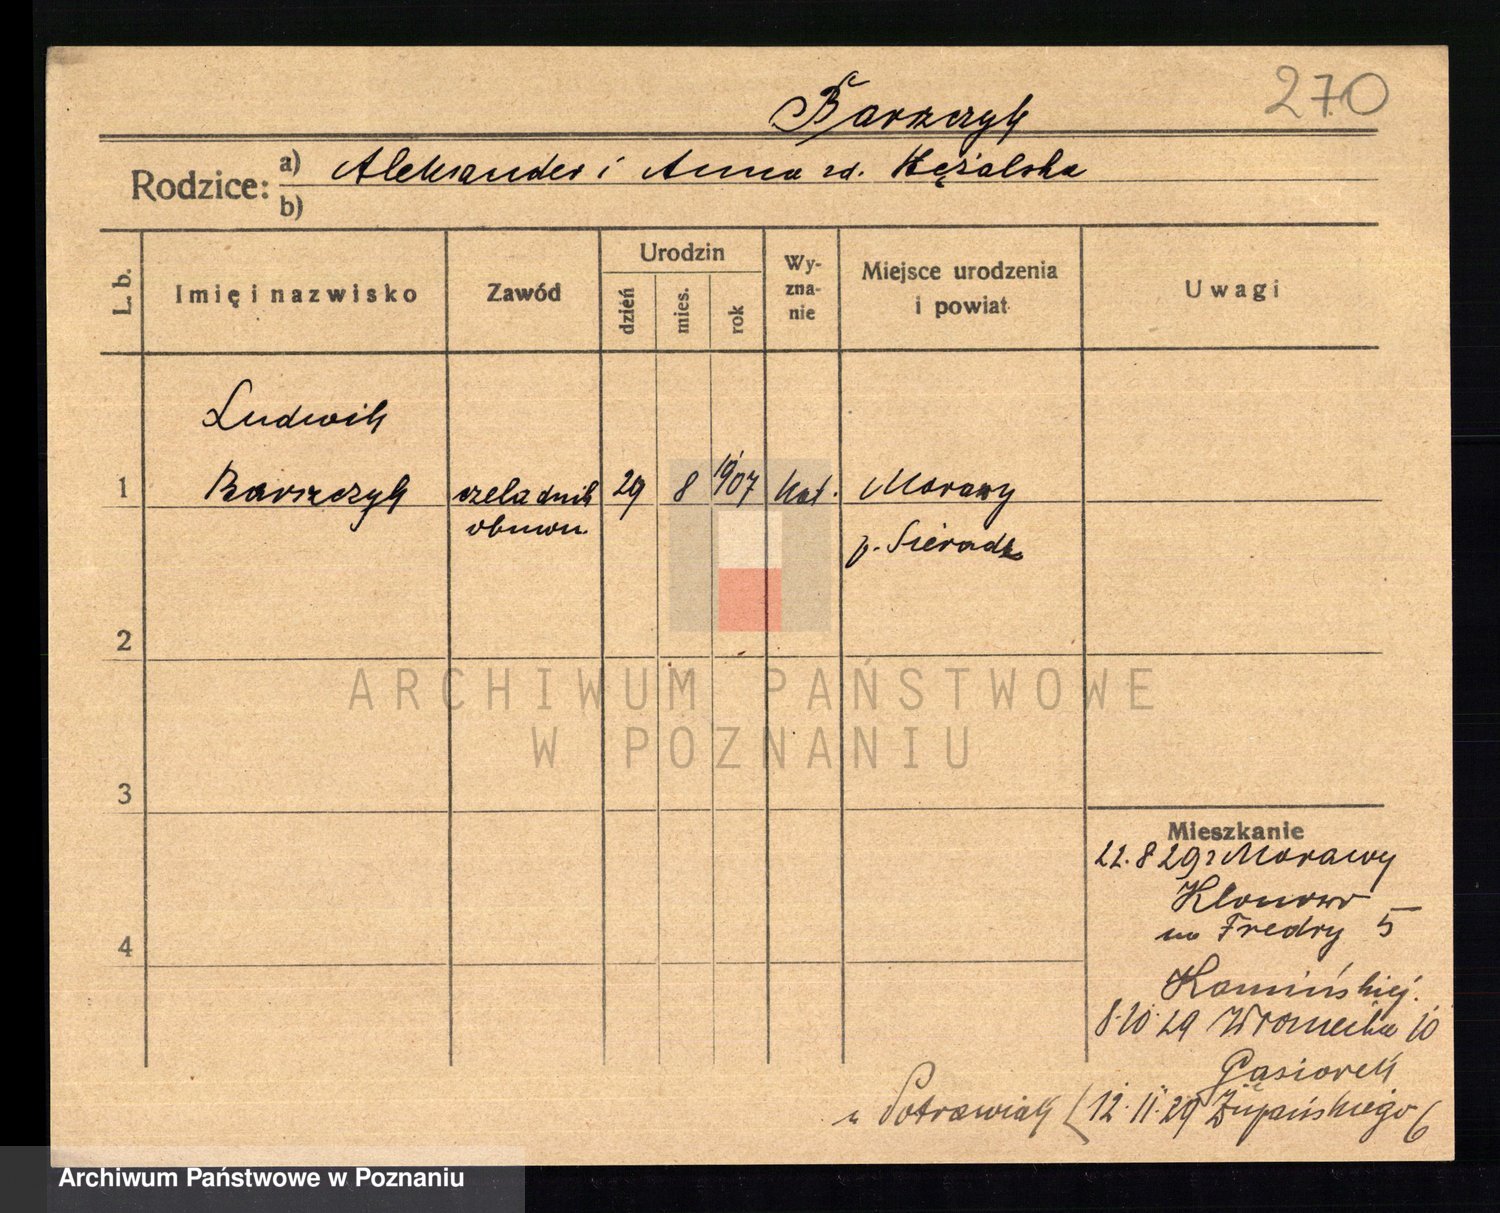 270
Barszczyk
Rodzice: a) Aleksander i Anna zd. Hężalska
b)
L. b. Imię i nazwisko Zawód Urodzin dzień mies. rok Wy-zna-nie Miejsce urodzenia i powiat Uwagi
Ludwik
1 Barszczyk czeladnik 29 8 1907 kat. Morawy
obuwn. p. Sieradz
2
ARCHIWUM PAŃSTWOWE
W POZNANIU
3
Mieszkanie
22.8 29 z Morawy
Klonowo
na Fredry 5
4
Kamińskiej.
8.10 29 Wroniecka 10
Gąsiorek
u Potrawiak (12.11.29 Żupańskiego 6
Archiwum Państwowe w Poznaniu